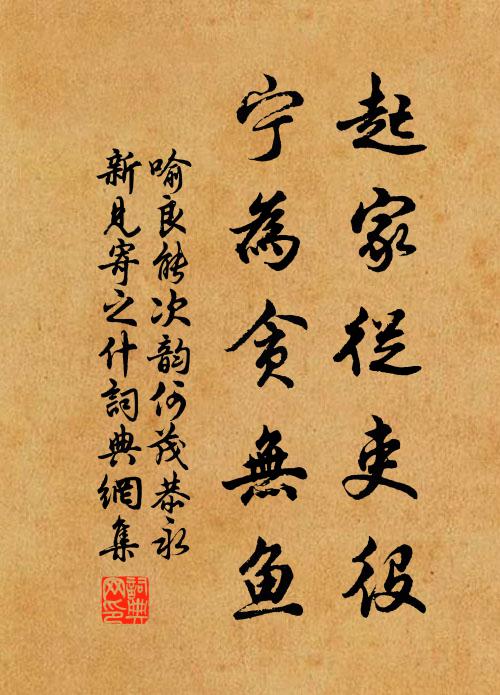 起家從吏役
宁為貪無鱼
喻良能次韵何茂恭永
新見寄之什詞典網集
詞典
网印